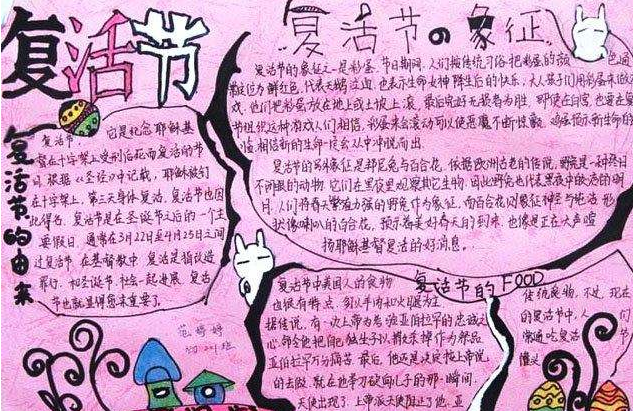 复活节
复活节的由来
复活节, 它是纪念耶稣基
督在十字架上受刑后死而复活的节
日。根据《圣经》中记载,耶稣被钉
在十字架上,第三天身体复活。复活节也因
此得名。复活节是在圣诞节之后的一个主
要假日。通常在3月22日至4月25日之间
过复活节。在基督教中,复活是指改造
罪行。和圣诞节一起进展,复活
节也就显得愈来重要了。
复活节の象征
复活节的象征之一是彩蛋。节日期间,人们按传统习俗把彩蛋的 色通
红色为鲜红色,代表天鹅泣血,也表示生命女神降生后的快乐。大人孩子们用彩蛋来做游
戏。他们把彩蛋放在地上或土坡上滚,最后破的
节组织这种游戏。人们相信,彩蛋来会滚动可以使恶魔不断惊颤,鸡蛋预示新生命的
相信新的生命一定会从中冲脱而出。
复活节的另外象征是邦尼兔与百合花。依据欧洲古老的传说,野兔是一种终日
不闭眼的动物。它们在黑夜里观察其它生物,因此野兔也代表黑夜中皎洁的明
月。人们将春天繁殖力强的野兔作为象征。而百合花则象征神圣与纯洁。形
状像喇叭的百合花,预示着美好春天的到来,也像是正在大声喧
扬耶稣基督复活的好消息。
复活节的FOOD
复活节中美国人的食物
也很有特点,多以羊肉和火腿为主
据传说,有一次上帝为考验亚伯拉罕的忠诚之
心,命令他把自己独生子以撒杀掉作为祭品
亚伯拉罕万分痛苦,最后,他还是决定按上帝说
的去做,就在他举刀砍向儿子的那一瞬间,
天使出现了,上帝派天使阻止了他。亚
传统食物。不过,现在
的复活节中,人们
常通吃复活节
馒头
范婷婷